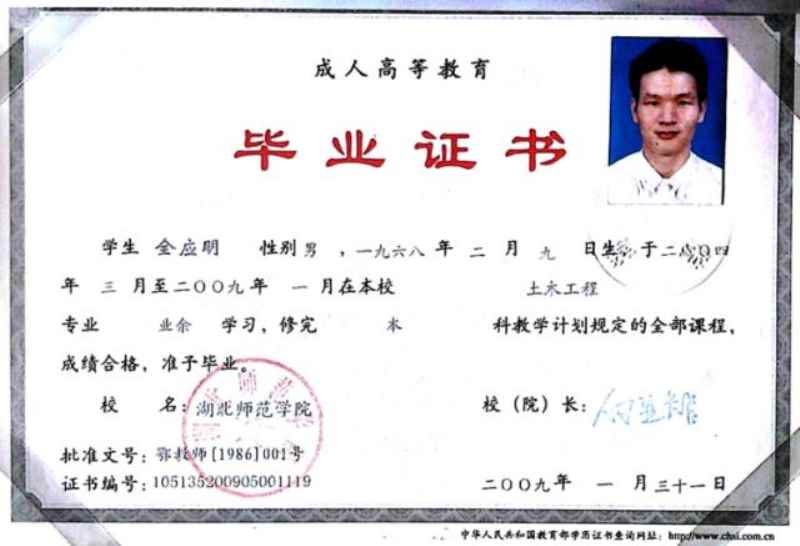 成人高等教育
毕业证书
学生 金应明 性别 男 ，一九六八 年 二 月 九 日生，于二〇〇四
年 三 月至二〇〇九年 一 月在本校 土木工程
专业 业余 学习，修完 本 科教学计划规定的全部课程，
成绩合格，准予毕业。
校 名：湖北师范学院 校（院）长：
批准文号：鄂教师[1986]001号
证书编号：105135200905001119 二〇〇九年 一 月 三十一日
中华人民共和国教育部学历证书查询网址：http://www.chsi.com.cn